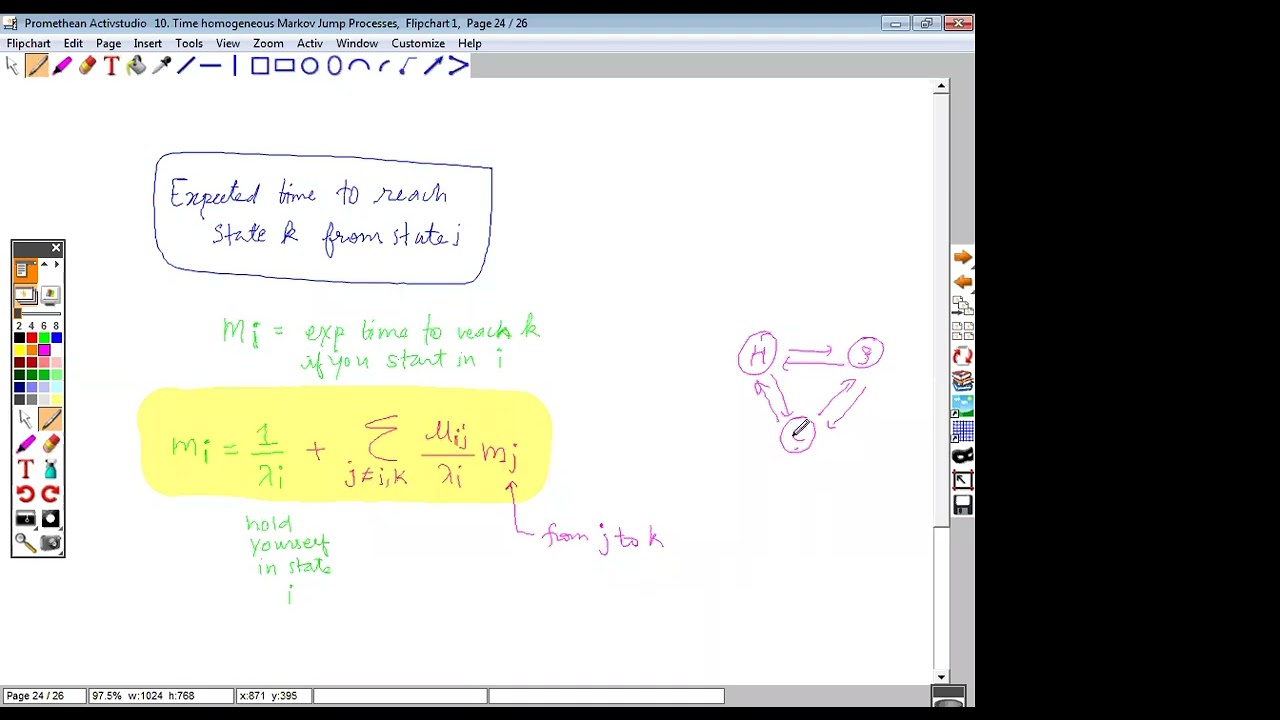 Promethean Activstudio 10. Time homogeneous Markov Jump Processes, Flipchart 1, Page 24 / 26
Flipchart Edit Page Insert Tools View Zoom Activ Window Customize Help
Expected time to reach
state k from state i
mi = exp time to reach k
if you start in i
mi = 1/λi + Σ j≠i,k μij/λi mj
hold
yourself
in state
i
from j to k
H
2 4 6 8
Page 24 / 26 97.5% w:1024 h:768 x:871 y:395